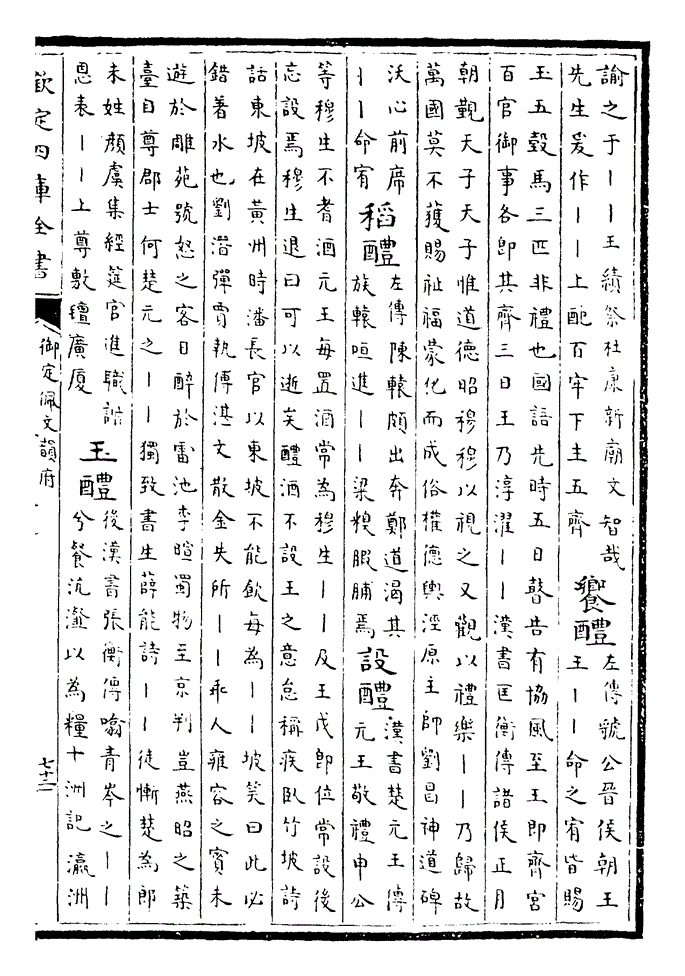 諭之于｜｜王績祭杜康新廟文智哉
先生爰作｜｜上配百牢下主五齊
饗醴
左傳虢公晉侯朝王
王｜｜命之宥皆賜
玉五瑴馬三匹非禮也國語先時五日瞽告有協風至王即齊宮
百官御事各即其齊三日王乃淳濯｜｜漢書匡衡傳諸侯正月
朝覲天子天子惟道德昭穆穆以視之又觀以禮樂｜｜乃歸故
萬國莫不獲賜祉福蒙化而成俗權德輿涇原主帥劉昌神道碑
沃心前席
｜｜命宥
稻醴
左傳陳轅頗出奔鄭道渴其
族轅咺進｜｜梁糗腶脯焉
設醴
漢書楚元王傳
元王敬禮申公
等穆生不耆酒元王每置酒常為穆生｜｜及王戊即位常設後
忘設焉穆生退曰可以逝矣醴酒不設王之意怠稱疾臥竹坡詩
話東坡在黃州時潘長官以東坡不能飲每為｜｜坡笑曰此必
錯著水也劉潛彈賈執傳湛文散金失所｜｜乖人雍容之賓未
遊於雕苑號怒之客日醉於雷池李暄蜀物至京判豈燕昭之築
臺自尊郡士何楚元之｜｜獨致書生薛能詩｜｜徒慚楚為郎
未姓顏虞集經筵官進職謝
恩表｜｜上尊敷氊廣厦
玉醴
後漢書張衡傳噏青岑之｜｜
兮餐沆瀣以為糧十洲記瀛洲
欽定四庫全書
御定佩文韻府
七十二